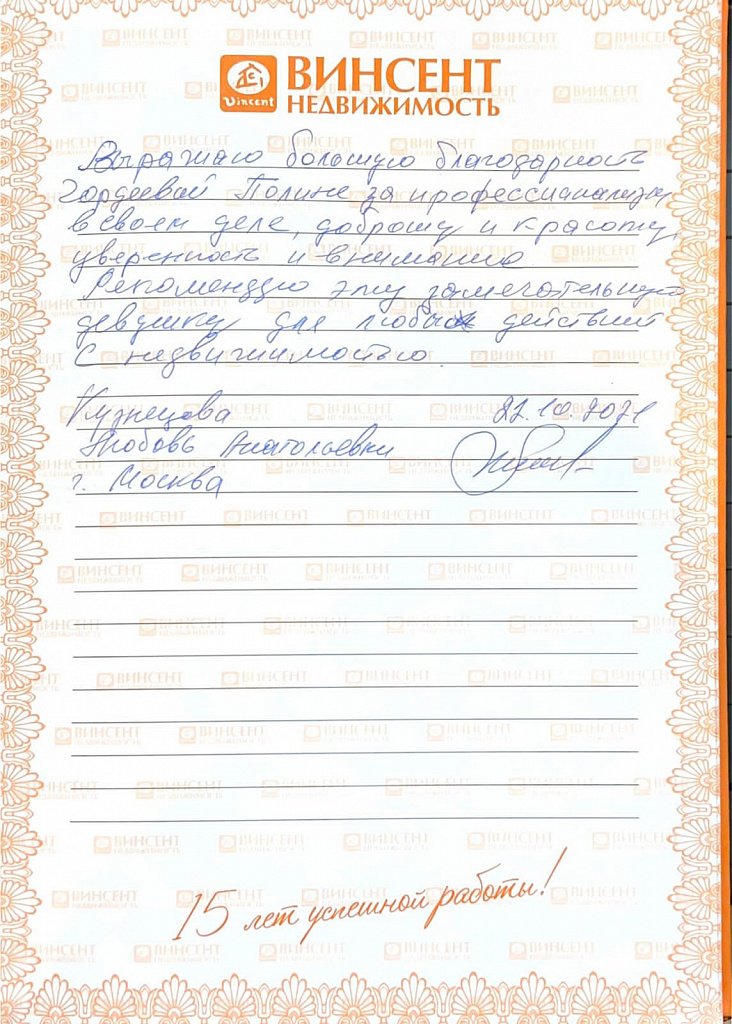 Vincent
ВИНСЕНТ
НЕДВИЖИМОСТЬ
Выражаю большую благодарность
Гордеевой Полине за профессианализм
в своем деле, доброту и красоту,
уверенность и внимание
Рекомендую эту замечательную
девушку для любых действий
с недвижимостью.
Кузнецова 22.10.2021
Любовь Анатольевна
г. Москва
15 лет успешной работы!